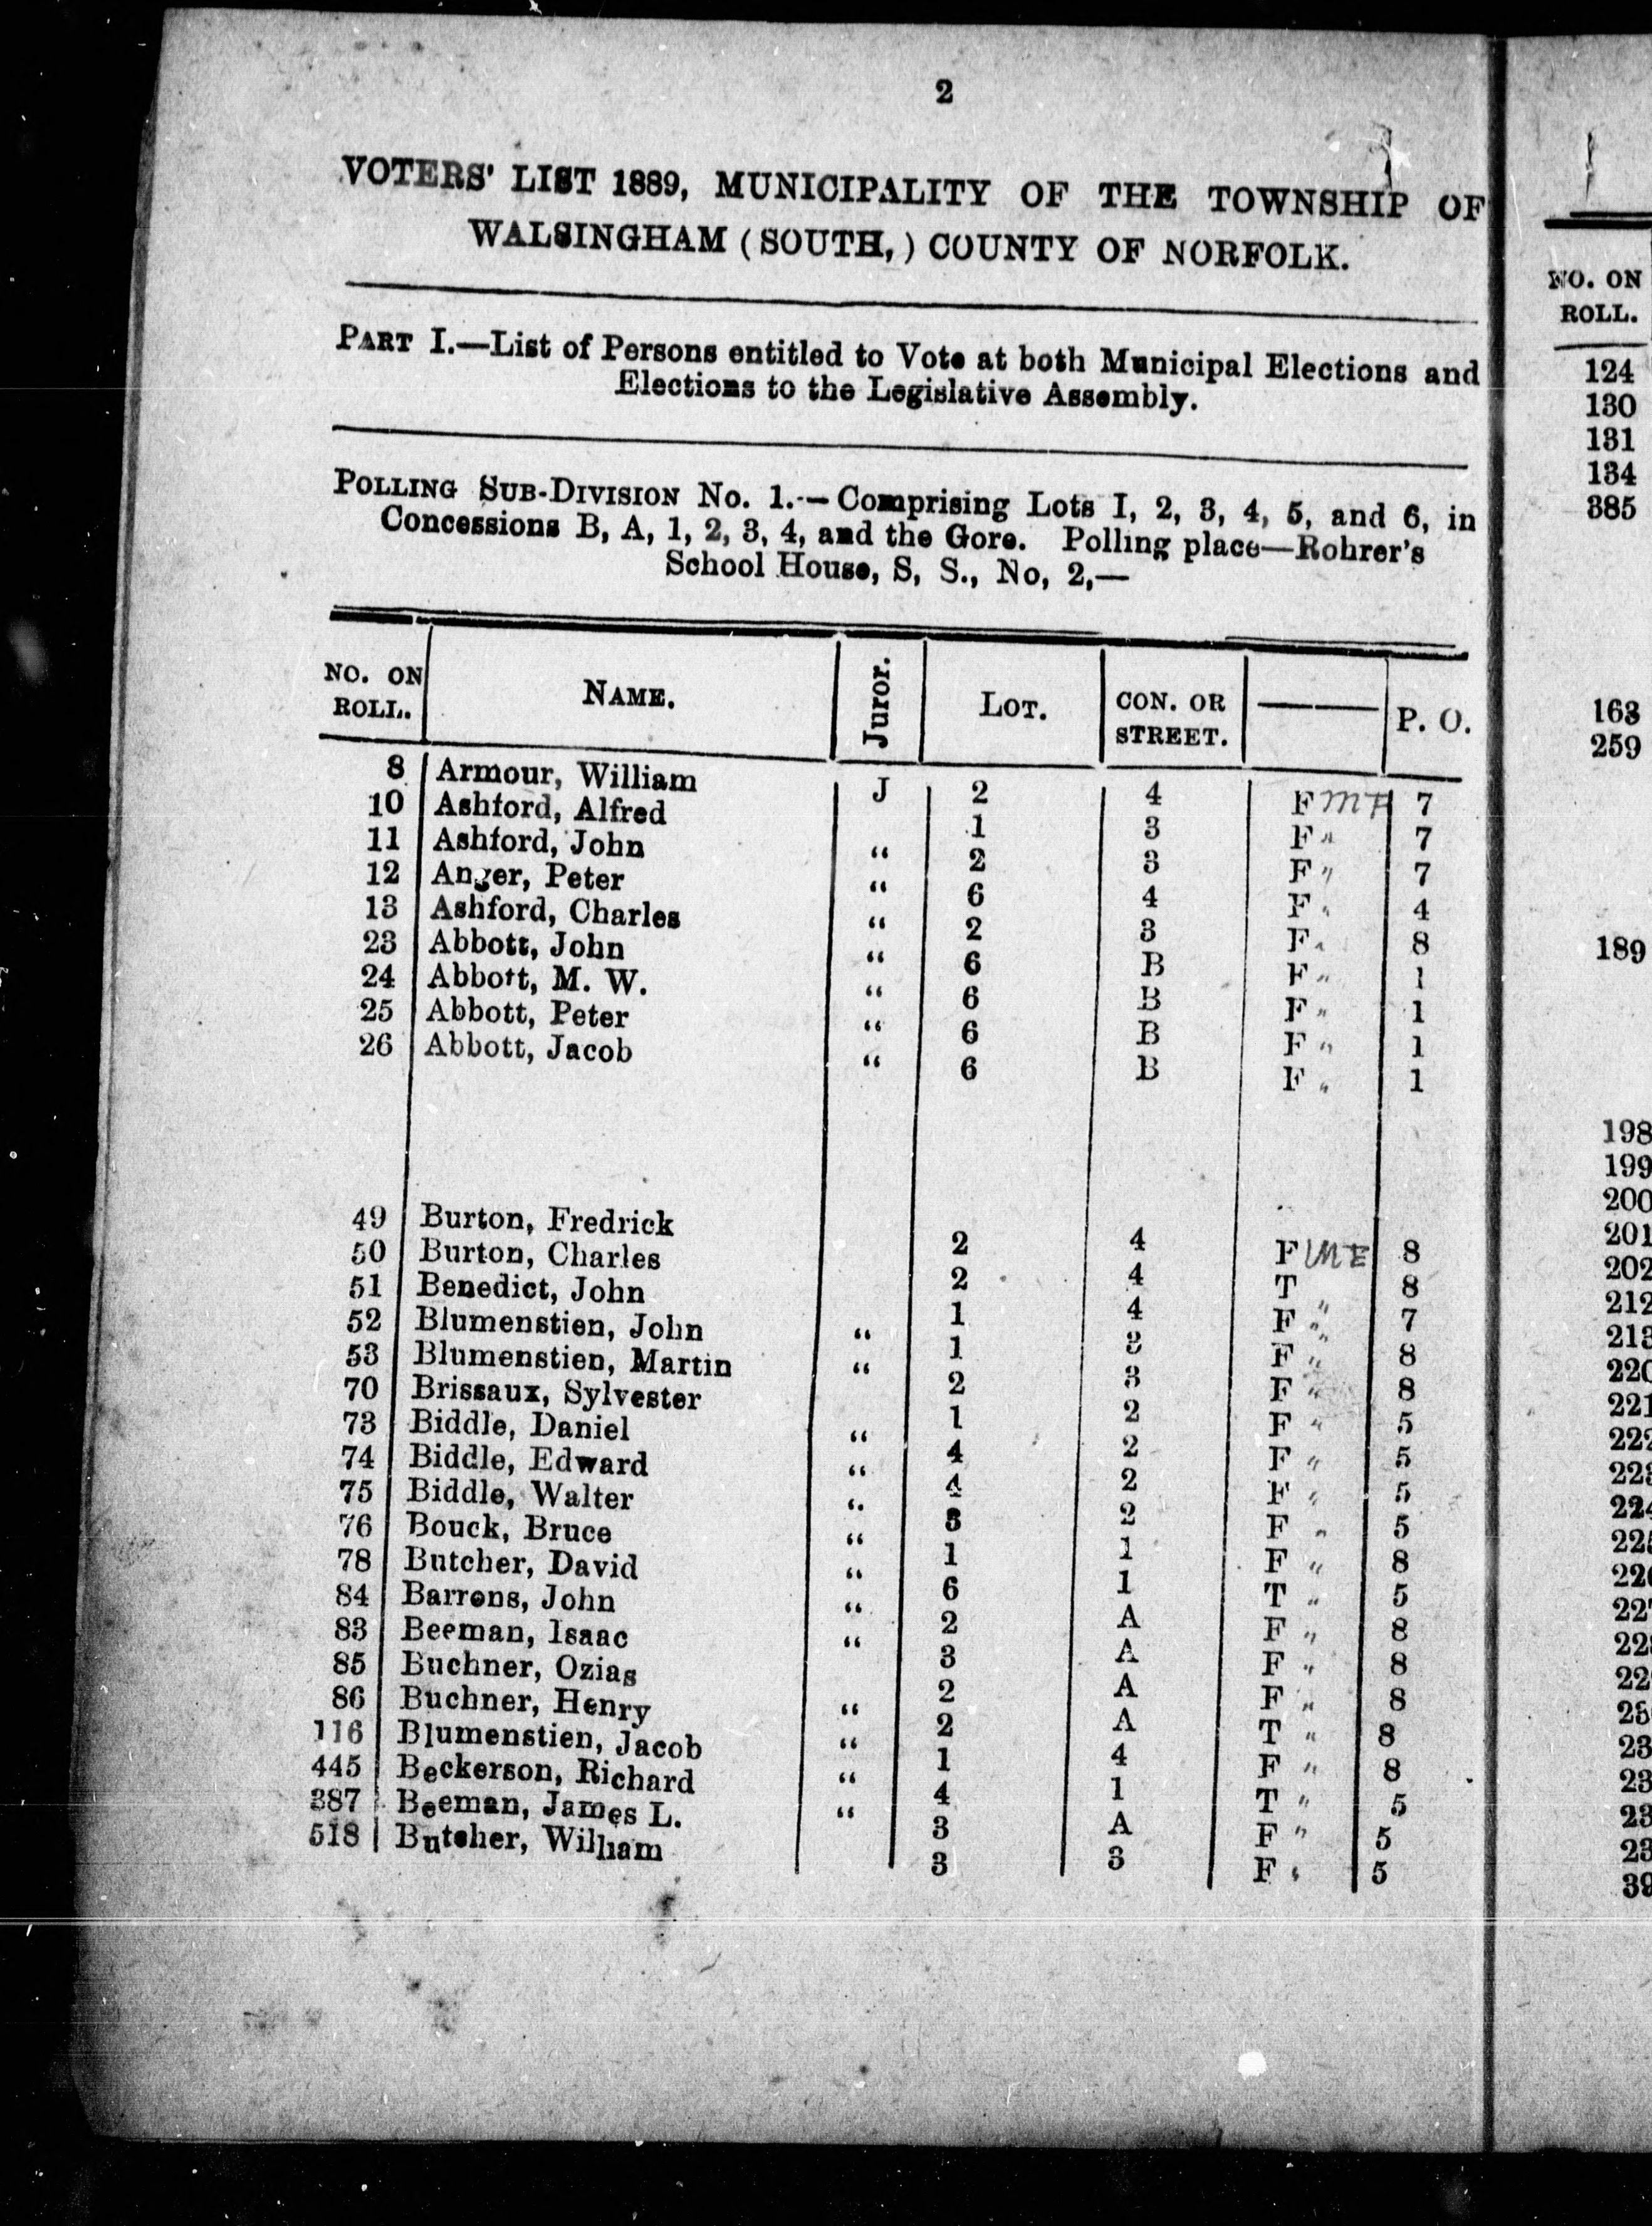 2
VOTERS' LIST 1889, MUNICIPALITY OF THE TOWNSHIP OF
WALSINGHAM (SOUTH,) COUNTY OF NORFOLK.
PART I.—List of Persons entitled to Vote at both Municipal Elections and
Elections to the Legislative Assembly.
POLLING SUB-DIVISION No. 1.—Comprising Lots I, 2, 3, 4, 5, and 6, in
Concessions B, A, 1, 2, 3, 4, and the Gore. Polling place—Rohrer's
School House, S, S., No, 2,—
NO. ON ROLL. NAME. Juror. LOT. CON. OR STREET. —— P. O.
8 Armour, William J 2 4 F MF 7
10 Ashford, Alfred 1 3 F " 7
11 Ashford, John “ 2 3 F " 7
12 Anger, Peter “ 6 4 F " 4
13 Ashford, Charles “ 2 3 F " 8
23 Abbott, John “ 6 B F " 1
24 Abbott, M. W. “ 6 B F " 1
25 Abbott, Peter “ 6 B F " 1
26 Abbott, Jacob “ 6 B F " 1
49 Burton, Fredrick 2 4 F MF 8
50 Burton, Charles 2 4 T " 8
51 Benedict, John 1 4 F " 7
52 Blumenstien, John “ 1 3 F " 8
53 Blumenstien, Martin “ 2 3 F " 8
70 Brissaux, Sylvester 1 2 F " 5
73 Biddle, Daniel “ 4 2 F " 5
74 Biddle, Edward “ 4 2 F " 5
75 Biddle, Walter “ 3 2 F " 5
76 Bouck, Bruce “ 1 1 F " 8
78 Butcher, David “ 6 1 T " 5
84 Barrons, John “ 2 A F " 8
83 Beeman, Isaac “ 3 A F " 8
85 Buchner, Ozias 2 A F " 8
86 Buchner, Henry “ 2 A T " 8
116 Blumenstien, Jacob “ 1 4 F " 8
445 Beckerson, Richard “ 4 1 T " 5
387 Beeman, James L. “ 3 A F " 5
518 Butcher, William 3 3 F " 5
NO. ON
ROLL.
124
130
131
134
385
163
259
189
198
199
200
201
202
212
213
220
221
222
223
224
225